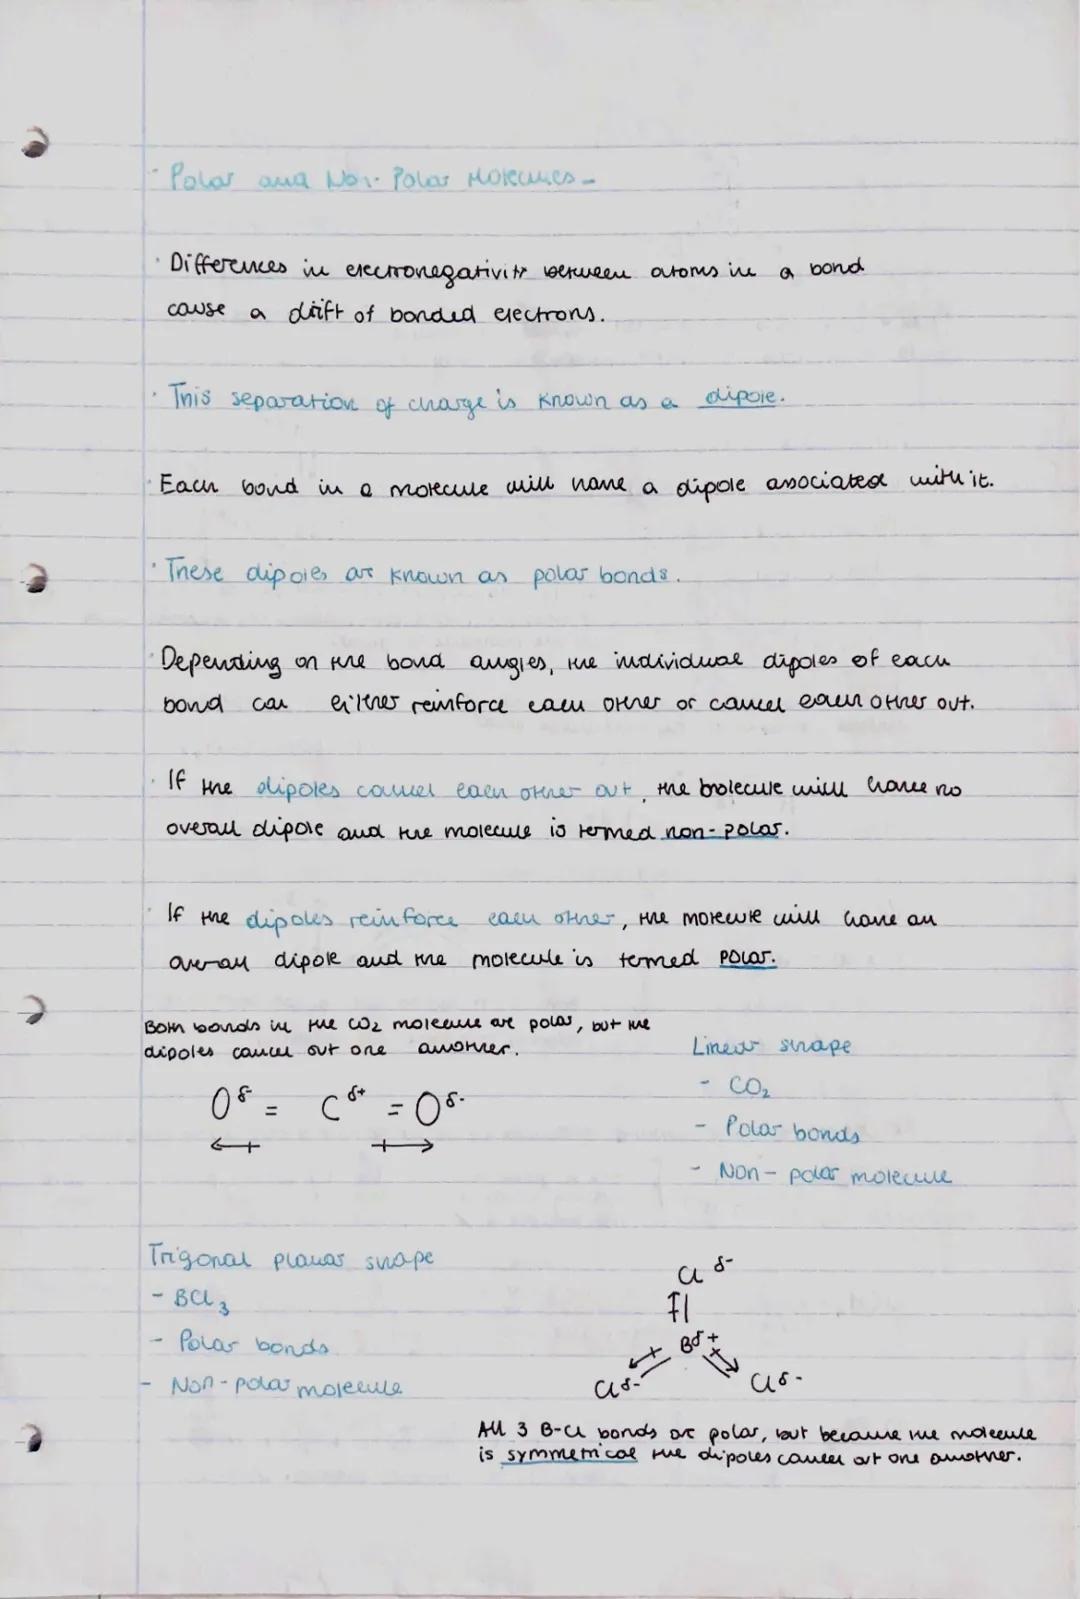 - Polar and Non-Polar Molecules -
· Differences in electronegativity between atoms in a bond
cause a drift of bonded electrons.
· This separation of charge is known as a dipole.
· Each bond in a molecule will have a dipole associated with it.
· These dipoles are known as polar bonds.
· Depending on the bond angles, the individual dipoles of each
bond can either reinforce each other or cancel each other out.
· If the dipoles cancel each other out, the molecule will have no
overall dipole and the molecule is termed non-polar.
· If the dipoles reinforce each other, the molecule will have an
overall dipole and the molecule is termed polar.
Both bonds in the CO₂ molecule are polar, but the
dipoles cancel out one another.
O δ- = C δ+ = O δ-
Linear shape
- CO₂
- Polar bonds
- Non-polar molecule
Trigonal planar shape
- BCl₃
- Polar bonds
- Non-polar molecule
Cl δ-
B δ+
Cl δ- Cl δ-
All 3 B-Cl bonds are polar, but because the molecule
is symmetrical the dipoles cancel out one another.